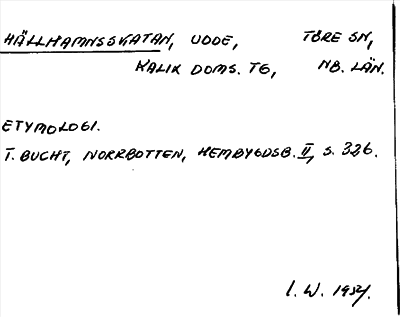 HÄLLHAMNSSKATAN, UDDE, TÖRE SN,
KALIX DOMS. TG, NB. LÄN.
ETYMOLOGI.
T. BUCHT, NORRBOTTEN, HEMBYGDSB. II, S. 326.
I. W. 1934.